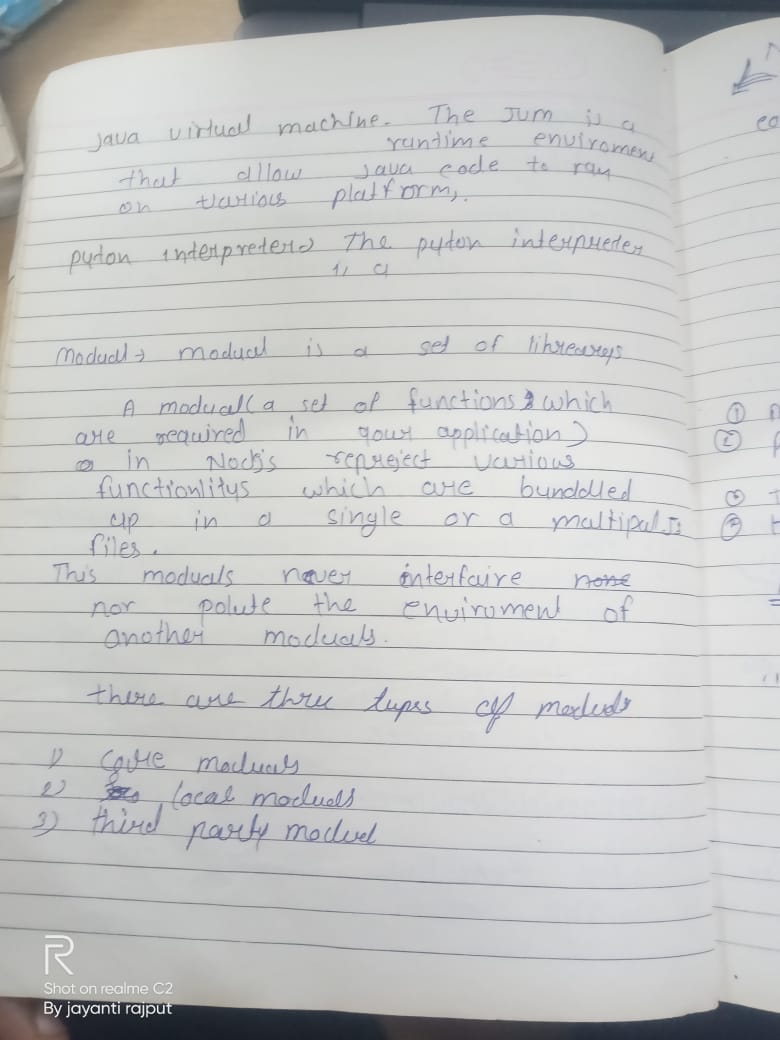 java virtual machine. The JVM is a
runtime enviromen
that allow java code to ray
on various platform,.
pyton interpreter→ The pyton interpreter
is a
Modual→ modual is a set of
A modual(a set of functions which
are required in your application)
in Nodejs various
functionlitys which are bunddled
up in a single or a multipal
files.
This moduals never interfaire none
nor polute the enviroment of
another moduals.
there are three types of moduals
1) Core moduals
2) local moduals
3) third party modual
①
②
③
④
R
Shot on realme C2
By jayanti rajput